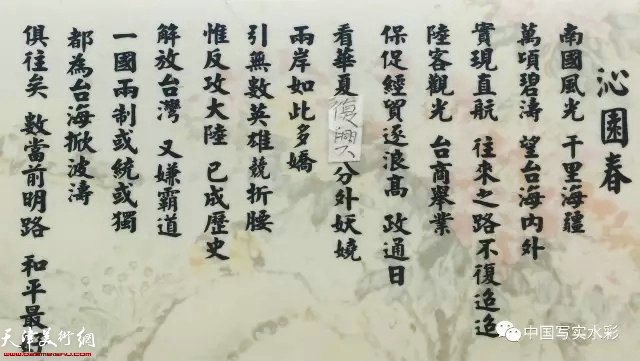 沁園春
南國風光 千里海疆
萬頃碧濤 望台海內外
實現直航 往來之路不復迢迢
陸客觀光 台商舉業
保促經貿逐浪高 政通日
看華夏復興分外妖嬈
兩岸如此多嬌
引無數英雄競折腰
惟反攻大陸 已成歷史
解放台灣 又嫌霸道
一國兩制或統或獨
都為台海掀波濤
俱往矣 數當前明路 和平最
天津美術網
中国写实水彩